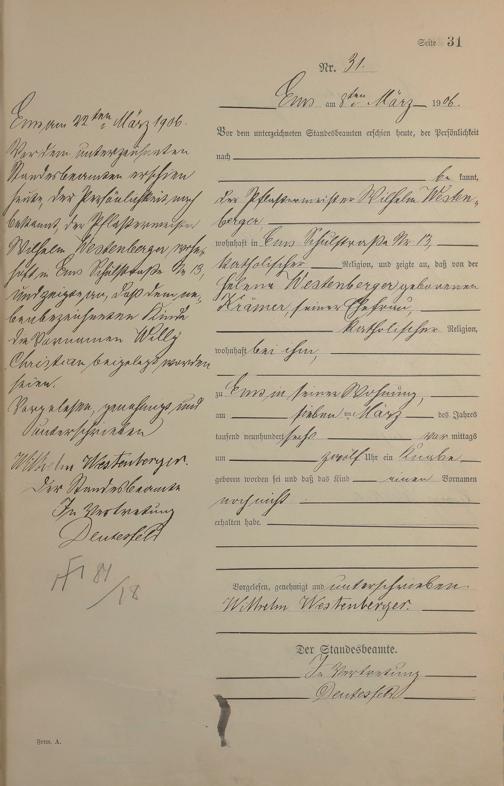 Seite 31
Nr. 31.
Ems am 8ten März 1906.
Vor dem unterzeichneten Standesbeamten erschien heute, der Persönlichkeit
nach
be kannt,
der Pflastermeister Wilhelm Westen-
berger,
wohnhaft in Ems Schulstraße Nr 13,
katholischer Religion, und zeigte an, daß von der
Helene Westenberger geborenen
Krämer, seiner Ehefrau,
katholischer Religion,
wohnhaft bei ihm,
zu Ems in seiner Wohnung,
am sieben ten März des Jahres
tausend neunhundert sechs vor mittags
um zwölf Uhr ein Knabe
geboren worden sei und daß das Kind einen Vornamen
noch nicht
erhalten habe.
Vorgelesen, genehmigt und unterschrieben
Wilhelm Westenberger.
Der Standesbeamte.
In Vertretung
Deutesfeld
Ems am 22ten März 1906.
Vor dem unterzeichneten
Standesbeamten erschien
heute, der Persönlichkeit nach
bekannt, der Pflastermeister
Wilhelm Westenberger, wohn-
haft in Ems Schulstraße Nr 13,
und zeigte an, daß dem ne-
benbezeichneten Kinde
die Vornamen Willy
Christian beigelegt worden
seien.
Vorgelesen, genehmigt und
unterschrieben
Wilhelm Westenberger.
Der Standesbeamte
In Vertretung
Deutesfeld
81
/18
Form. A.